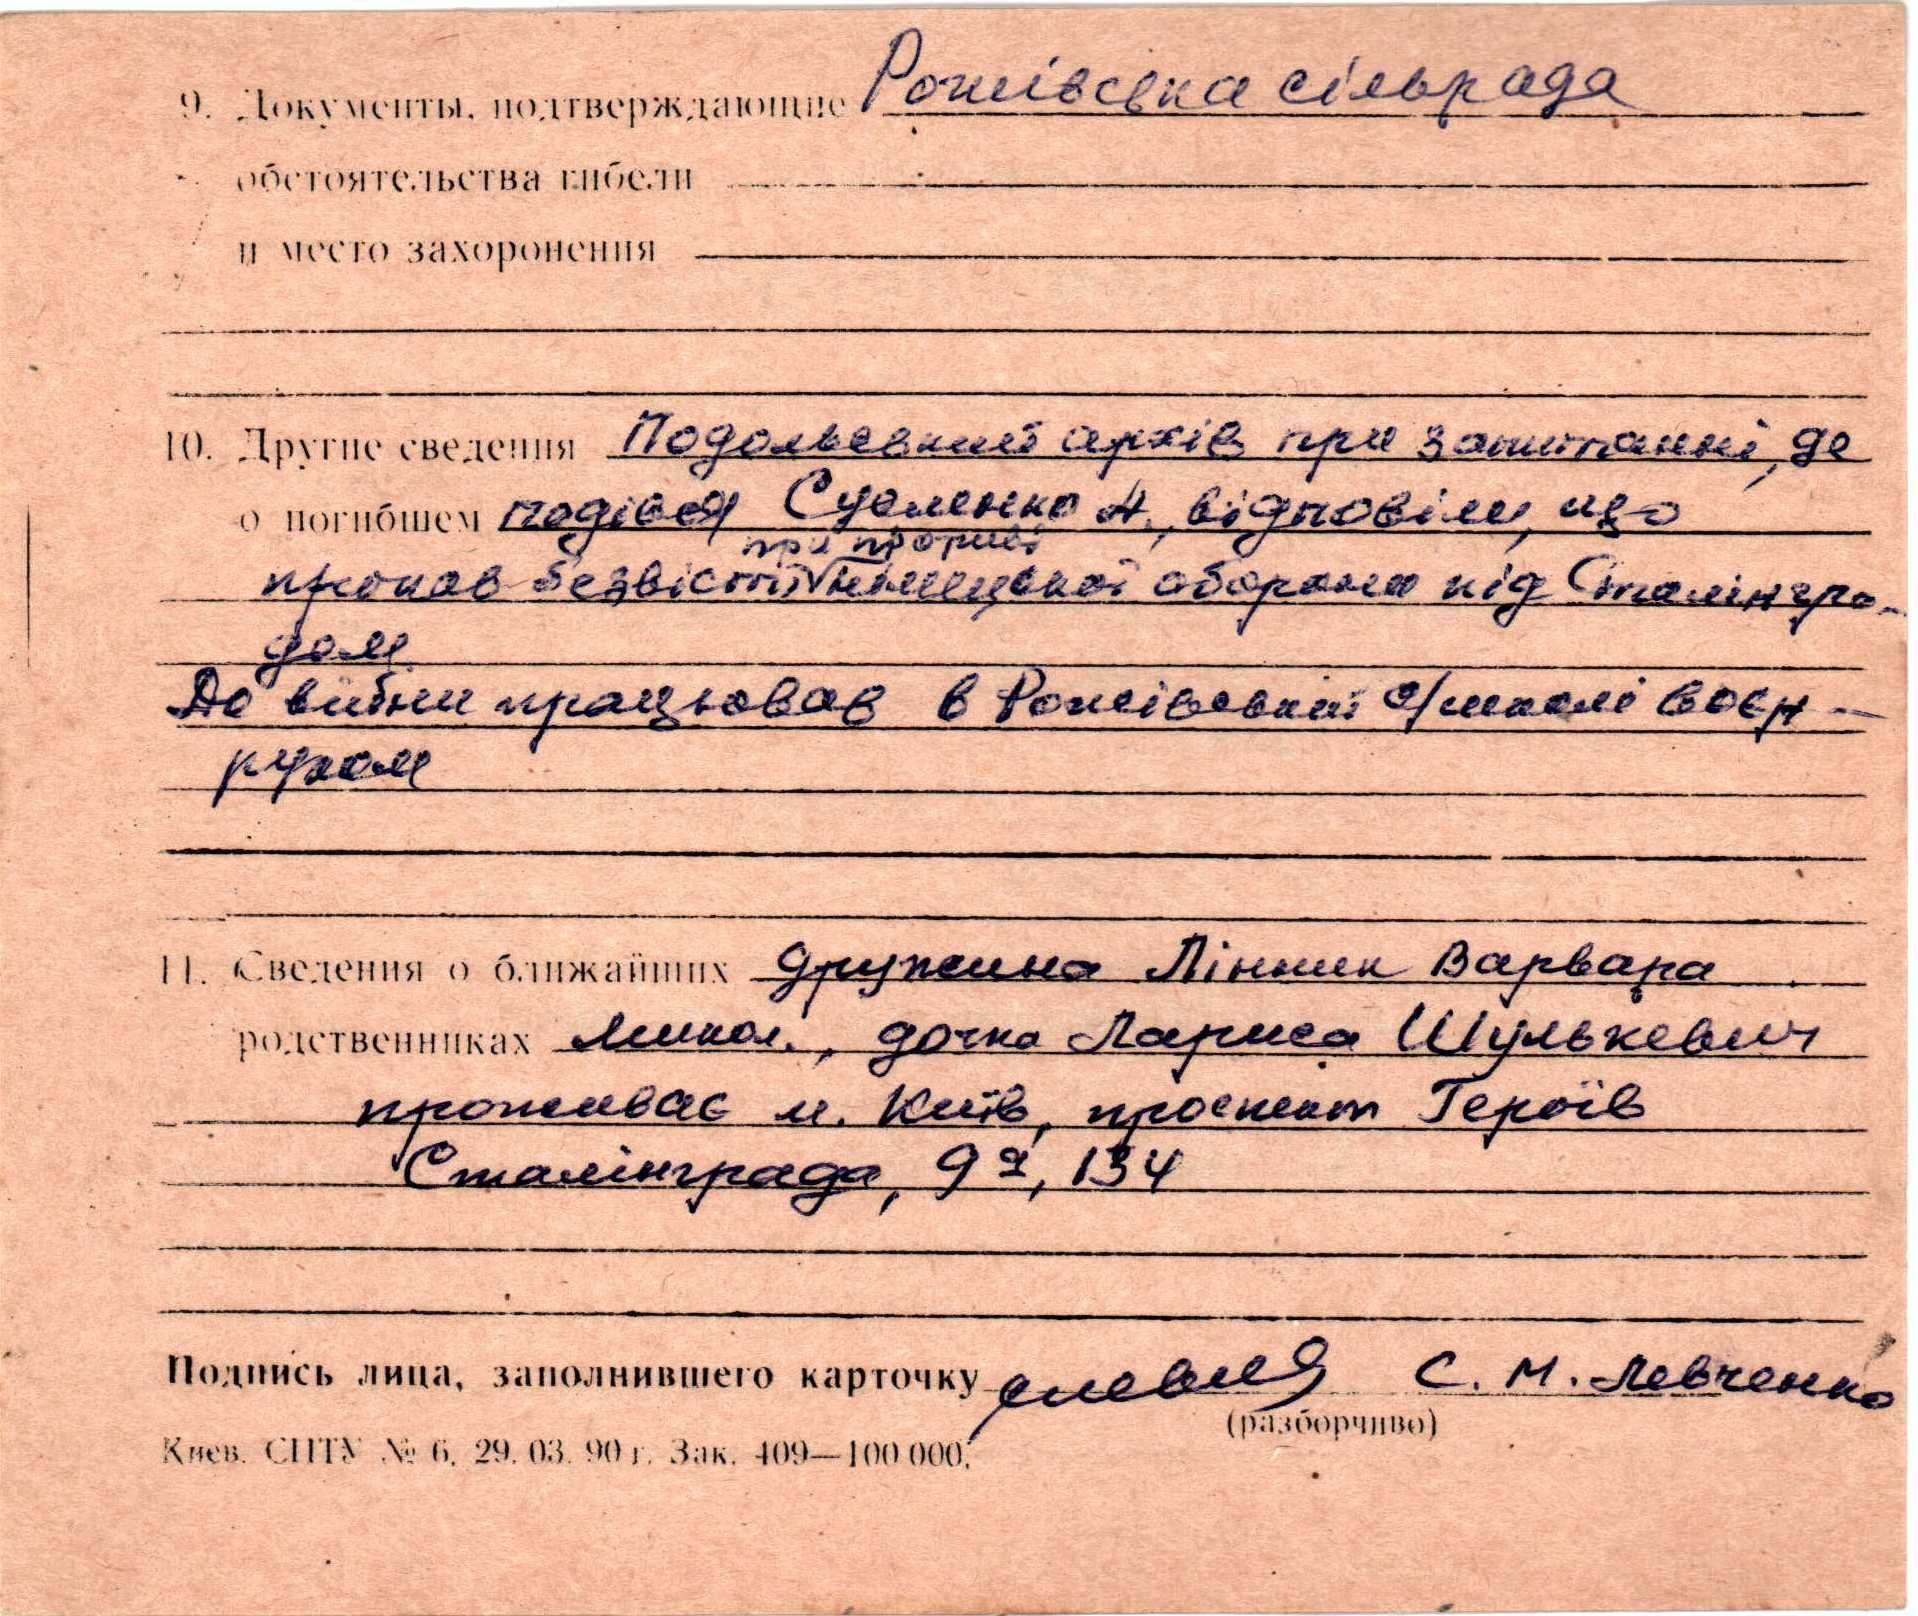 9. Документы, подтверждающие Рожівська сільрада
обстоятельства гибели
и место захоронения
10. Другие сведения Подольський архів при запитанні, де
о погибшем подівся Сусленко А., відповіли, що
при прориві
пропав безвісті √ німецької оборони під Сталінгра-
дом.
До війни працював в Рожівській с/школі воєн-
руком
11. Сведения о ближайших дружина Лінник Варвара
родственниках Микол., дочка Лариса Шулькевич
проживає м. Київ, проспект Героїв
Сталінграда, 9а, 134
Подпись лица, заполнившего карточку С. М. Левченко
(разборчиво)
Киев. СПТУ № 6. 29. 03. 90 г. Зак. 409—100 000.